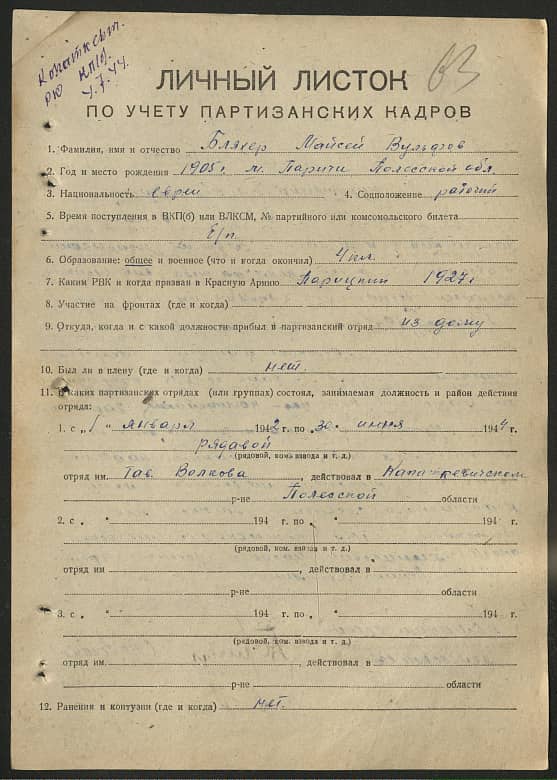 4.7.44.
63
ЛИЧНЫЙ ЛИСТОК
ПО УЧЕТУ ПАРТИЗАНСКИХ КАДРОВ
1. Фамилия, имя и отчество Бляхер Майсей Вульфов
2. Год и место рождения 1905 г. м. Паричи Полесской обл.
3. Национальность еврей 4. Соцположение рабочий
5. Время поступления в ВКП(б) или ВЛКСМ, № партийного или комсомольского билета
б/п
6. Образование: общее и военное (что и когда окончил) 4 кл.
7. Каким РВК и когда призван в Красную Армию Парицким 1927 г
8. Участие на фронтах (где и когда)
9. Откуда, когда и с какой должности прибыл в партизанский отряд из дому
10. Был ли в плену (где и когда) нет.
11. В каких партизанских отрядах (или группах) состоял, занимаемая должность и район действия
отряда:
1. с „1" января 1942 г. по „30" июня 1944 г.
рядавой
(рядовой, ком. взвода и т. д.)
отряд им. Тав. Волкова, действовал в Капаткевичском
р-не Полесской области
2. с „ " 194 г. по „ " 194 г.
(рядовой, ком. взвода и т. д.)
отряд им , действовал в
р-не области
3. с „ " 194 г. по „ " 194 г.
(рядовой, ком. взвода и т. д.)
отряд им , действовал в
р-не области
12. Ранения и контузии (где и когда) нет.